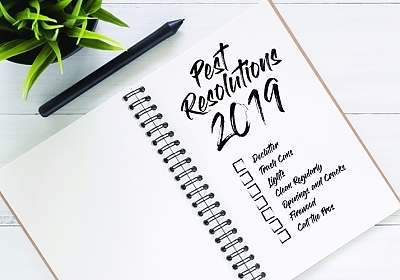 Pest
Resolutions
2019
Declutter
Trash Cans
Lights
Clean Regularly
Openings and Cracks
Firewood
Call the Pros